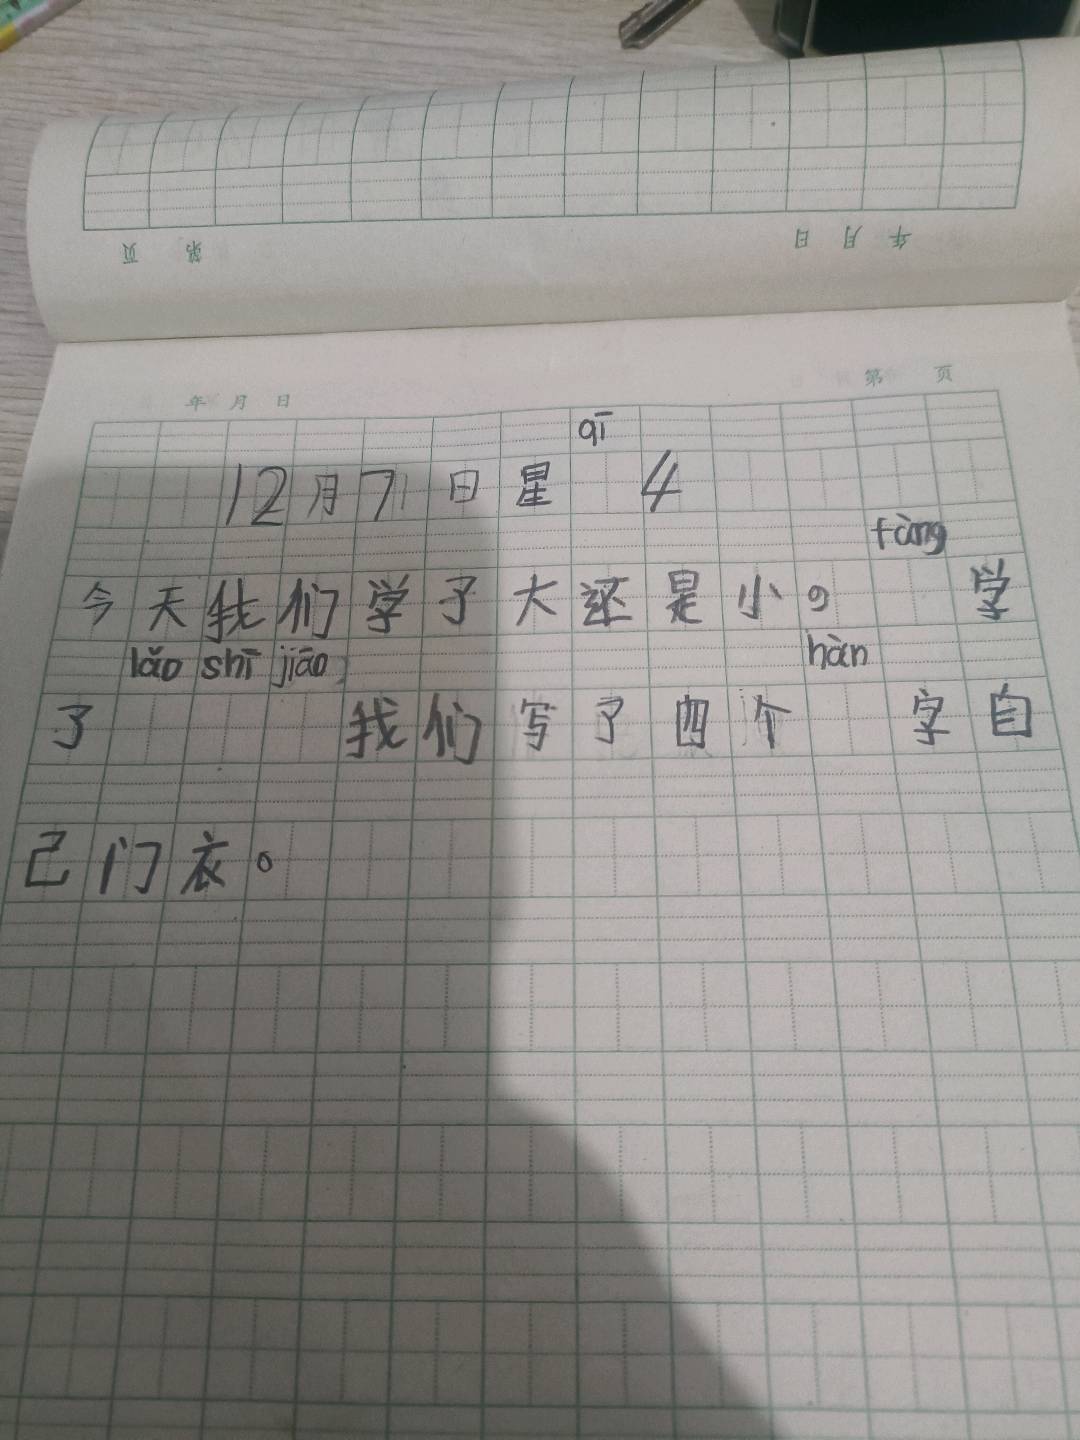 页 第 日 月 年
年 月 日 第 页
qī
12月7日星 4
fàng
今天我们学了大还是小。 学
lǎo shī jiāo hàn
了 我们写了四个 字自
己门衣。